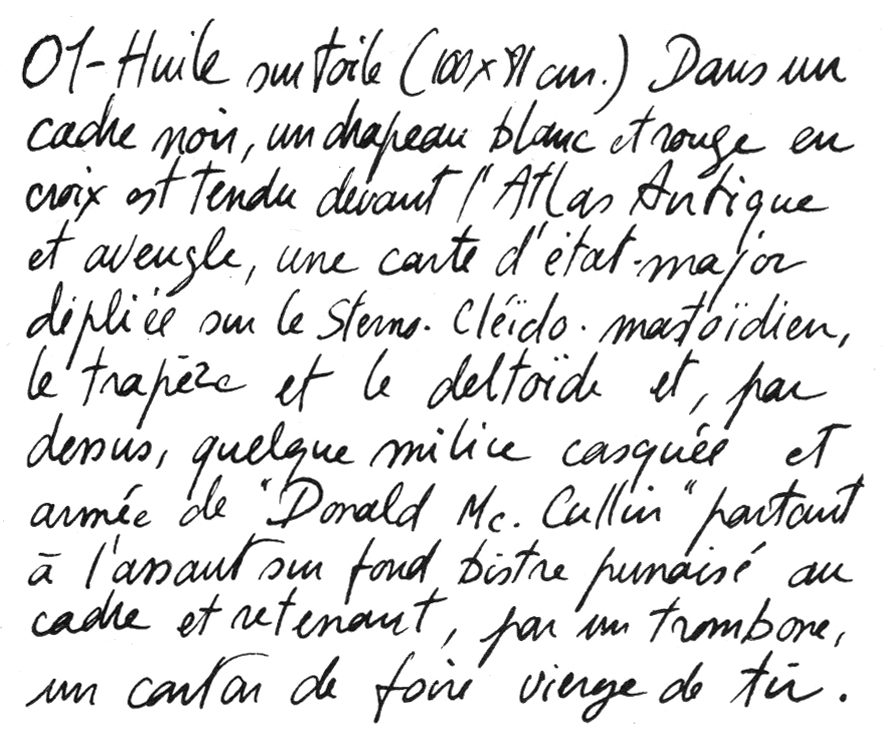 01-Huile sur toile (100x81 cm.) Dans un
cadre noir, un drapeau blanc et rouge en
croix est tendu devant l'Atlas Antique
et aveugle, une carte d'état-major
dépliée sur le Sterno. Cléïdo. mastoïdien,
le trapèze et le deltoïde et, par
dessus, quelque milice casquée et
armée de "Donald Mc. Cullin" partant
à l'assaut sur fond bistre punaisé au
cadre et retenant, par un trombone,
un carton de foire vierge de tir.